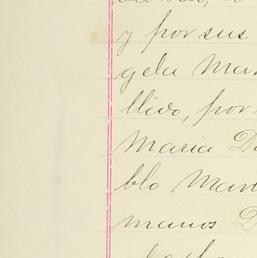 y por sus
gela Ma
llido, por
Maria D
blo Mar
manos D